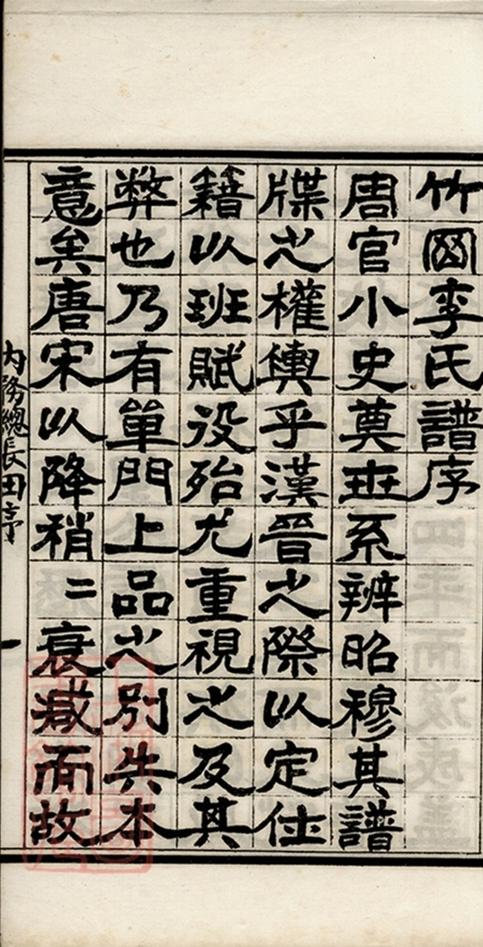 竹岡李氏譜序
周官小史奠世系辨昭穆其譜
牒之權輿乎漢晉之際以定仕
籍以班賦役殆尤重視之及其
弊也乃有單門上品之別失本
意矣唐宋以降稍二衰減而故
内務總長田序
一